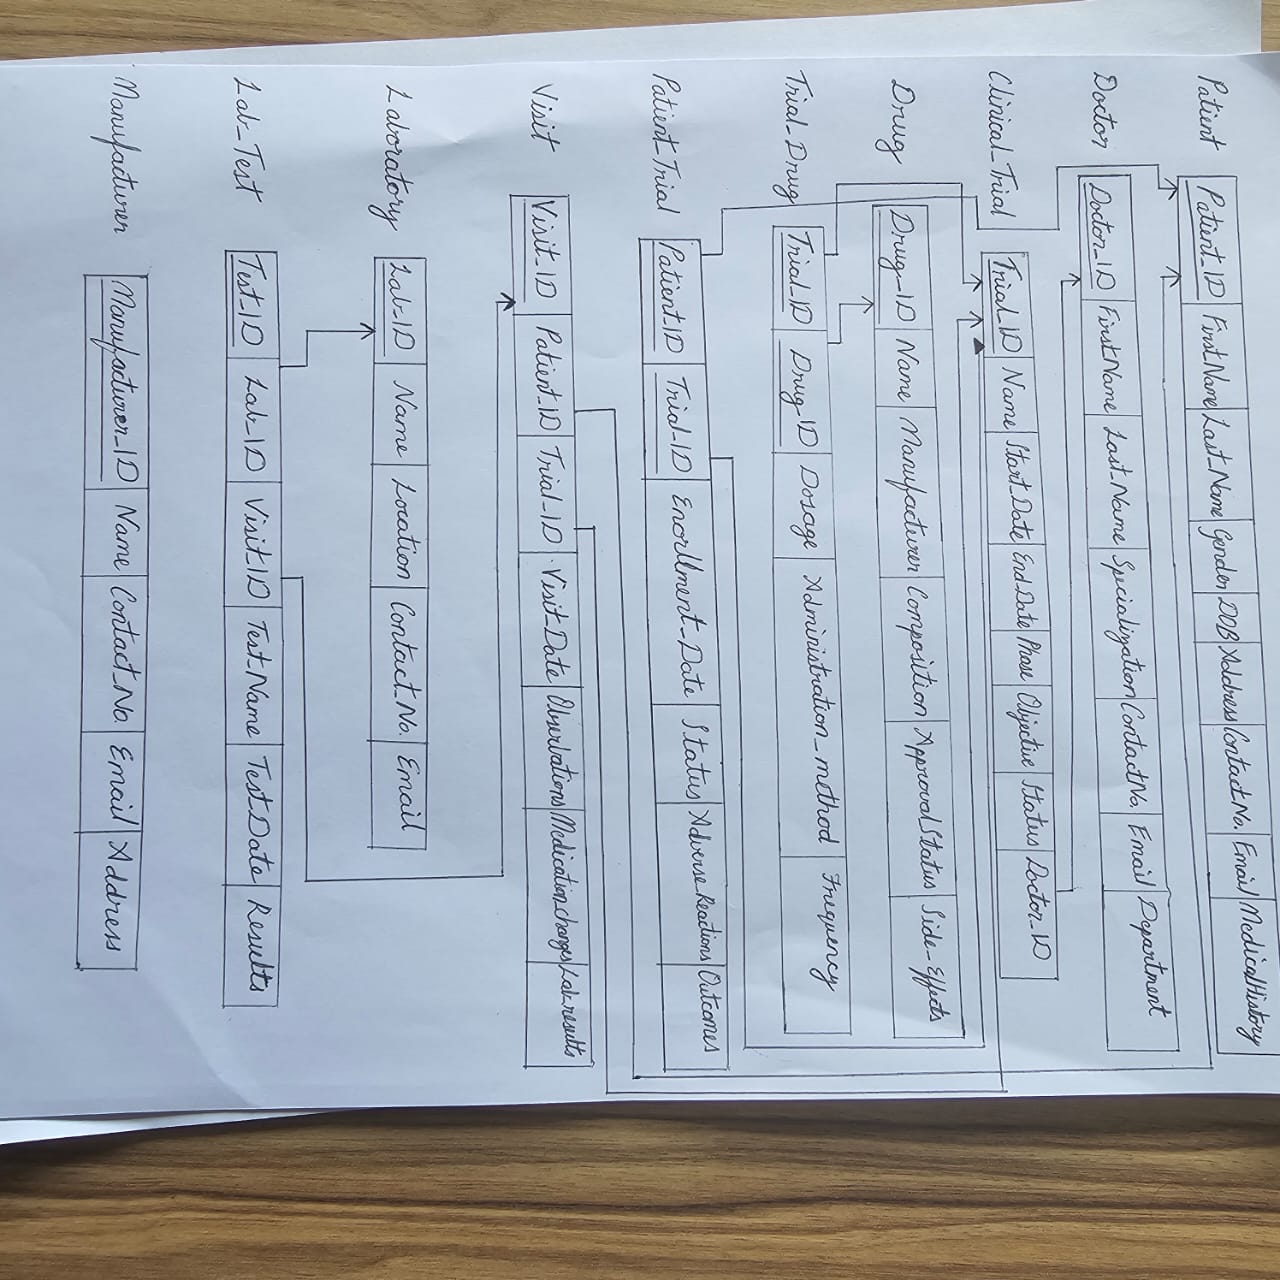 Patient
Patient_ID FirstName Last_Name Gender DOB Address Contact No. Email MedicalHistory
Doctor
Doctor_ID FirstName Last_Name Specialization Contact No. Email Department
Clinical_Trial
Trial_ID Name Start_Date End Date Phase Objective Status Doctor_ID
Drug
Drug_ID Name Manufacturer Composition Approval Status Side_Effects
Trial_Drug
Trial_ID Drug_ID Dosage Administration_method Frequency
Patient_Trial
Patient_ID Trial_ID Enorllment_Date Status Adverse_Reactions Outcomes
Visit
Visit_ID Patient_ID Trial_ID Visit_Date Observations Medication_changes Lab_results
Laboratory
Lab_ID Name Location Contact_No. Email
Lab_Test
Test_ID Lab_ID Visit_ID Test_Name Test_Date Results
Manufacturer
Manufacturer_ID Name Contact_No. Email Address